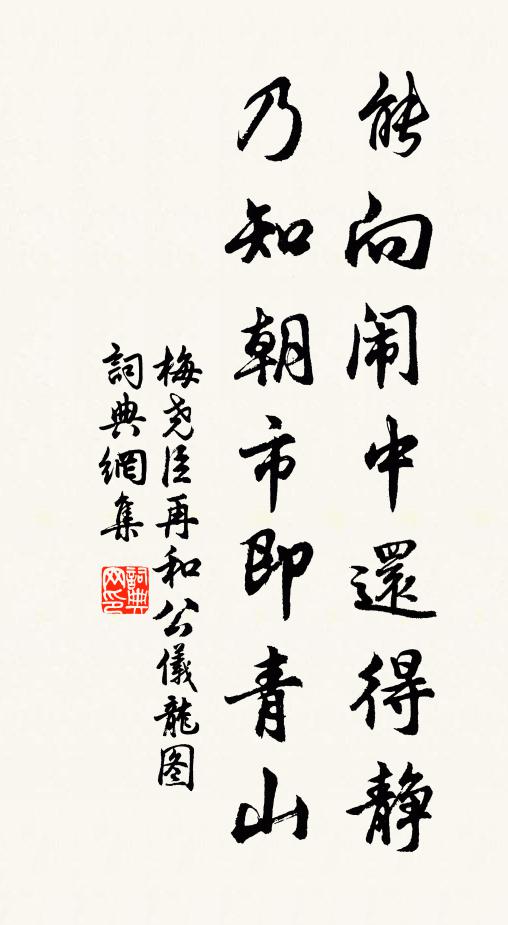 能向闹中還得静
乃知朝市即青山
梅尧臣再和公儀龍图
詞典網集
詞典
网印